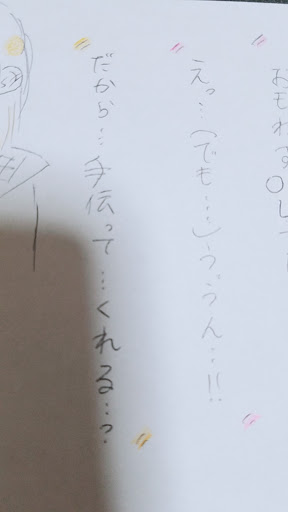 おもわず○して
えっ…(でも…)う、うん…!!
だから…手伝って…くれる…?